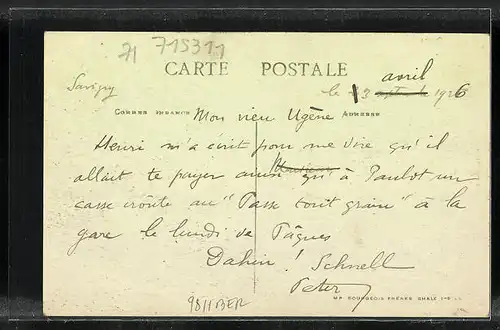 71 715311
CARTE POSTALE
Savigry
le 13 avril 1926
CORRESPONDANCE
ADRESSE
Mon vieu Ugène
Henri m'a écrit pour me dire qu'il
allait te payer ainsi qu'à Paulot un
casse croûte au "Passe tout grain" à la
gare le lundi de Pâques
Dahin! Schnell
Peter
IMP. BOURGEOIS FRÈRES CHALON
9811BER